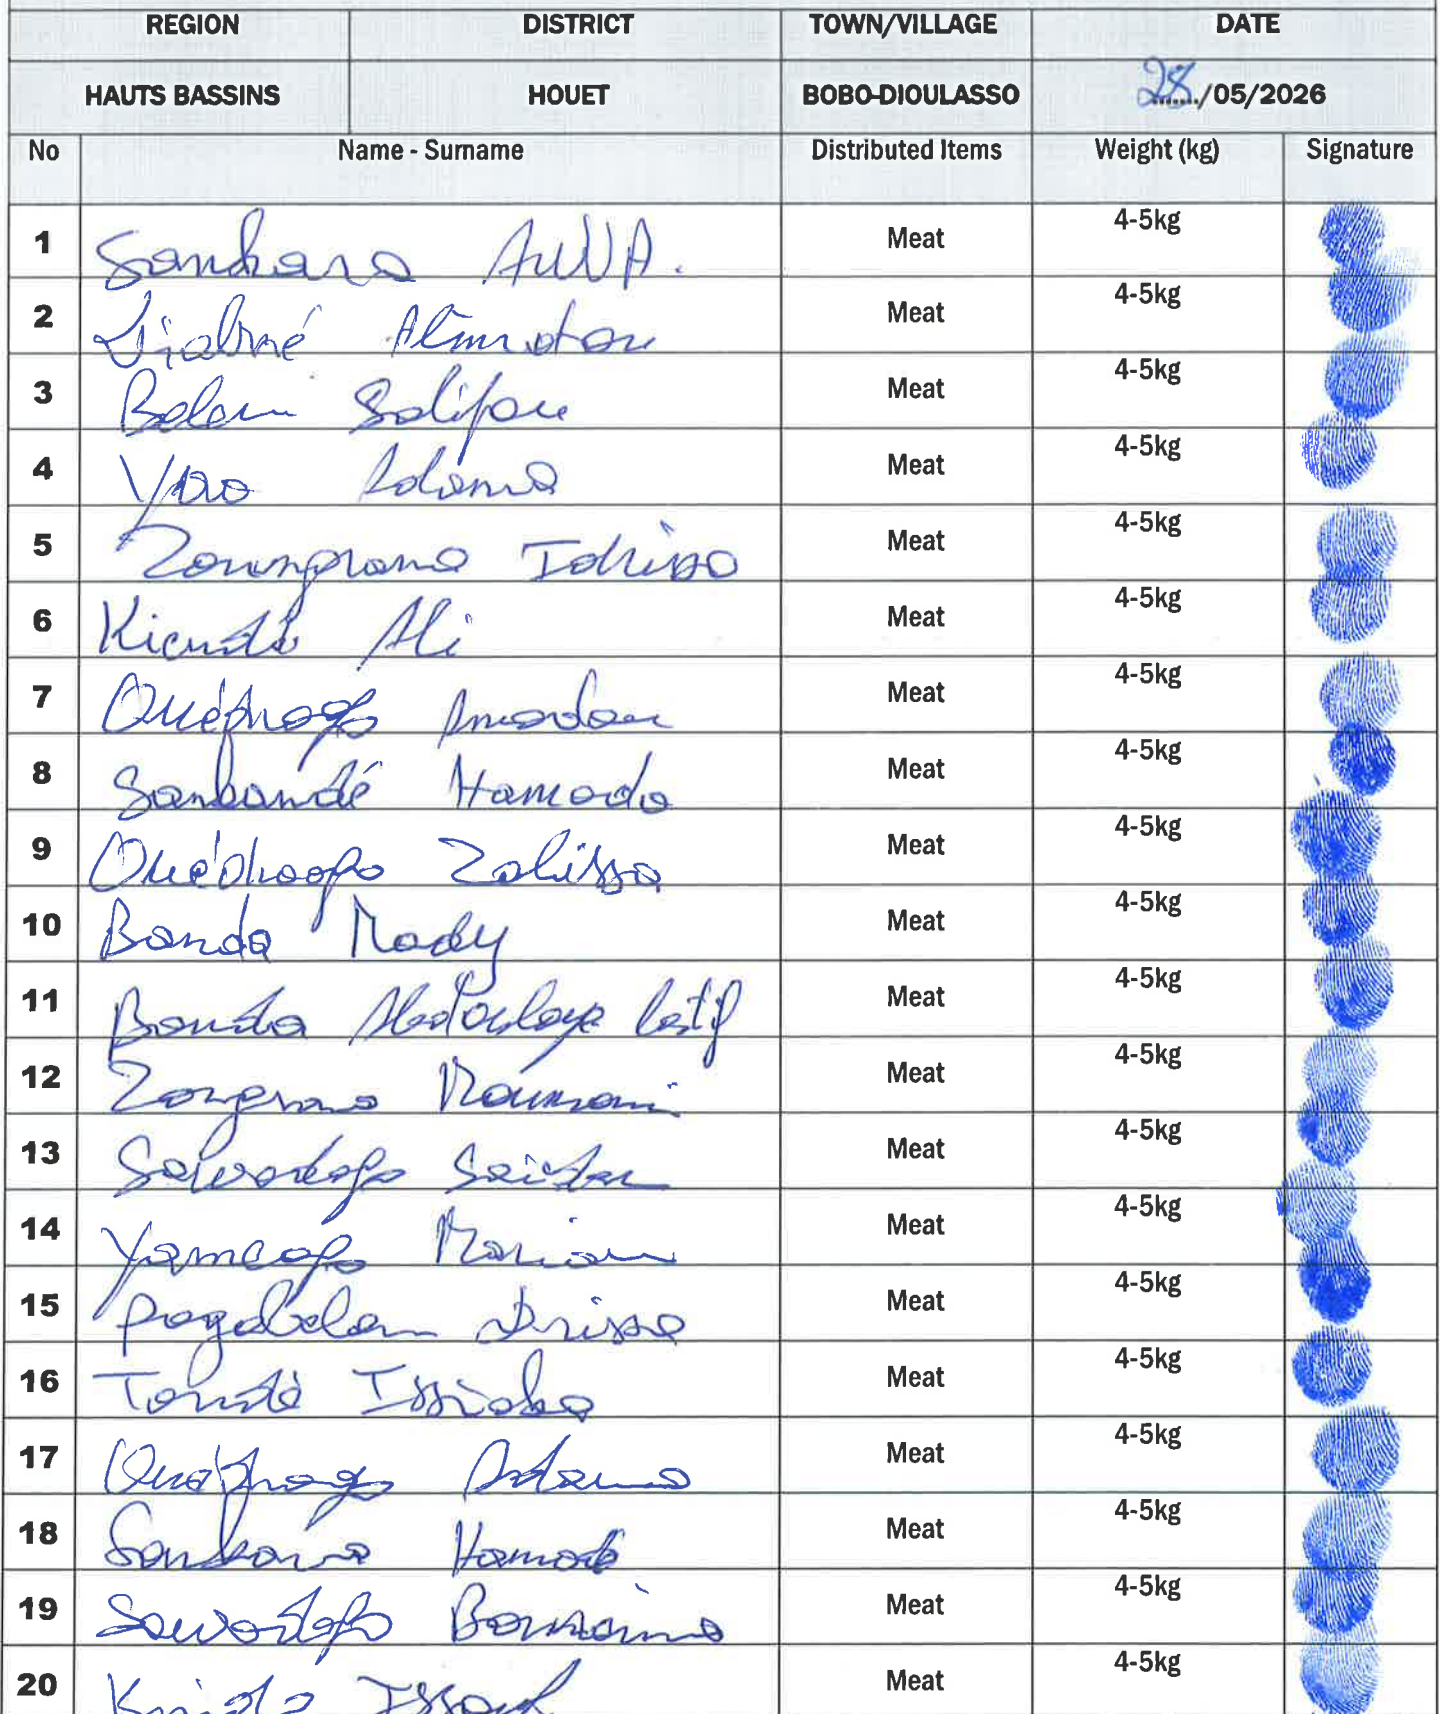 REGION DISTRICT TOWN/VILLAGE DATE
HAUTS BASSINS HOUET BOBO-DIOULASSO 28/05/2026
No Name - Surname Distributed Items Weight (kg) Signature
1 Sankara AWA. Meat 4-5kg
2 Meat 4-5kg
3 Belem Salifou Meat 4-5kg
4 Adama Meat 4-5kg
5 Zoungrana Idrissa Meat 4-5kg
6 Kiendé Ali Meat 4-5kg
7 Ouédraogo Amadou Meat 4-5kg
8 Hamado Meat 4-5kg
9 Ouédraogo Zalissa Meat 4-5kg
10 Banda Mady Meat 4-5kg
11 Banda Abdoulaye Latif Meat 4-5kg
12 Zongrana Meat 4-5kg
13 Sawadogo Meat 4-5kg
14 Yameogo Mariam Meat 4-5kg
15 Pagabelem Drissa Meat 4-5kg
16 Issiaka Meat 4-5kg
17 Ouédraogo Adama Meat 4-5kg
18 Sankara Hamado Meat 4-5kg
19 Sawadogo Meat 4-5kg
20 Issouf Meat 4-5kg